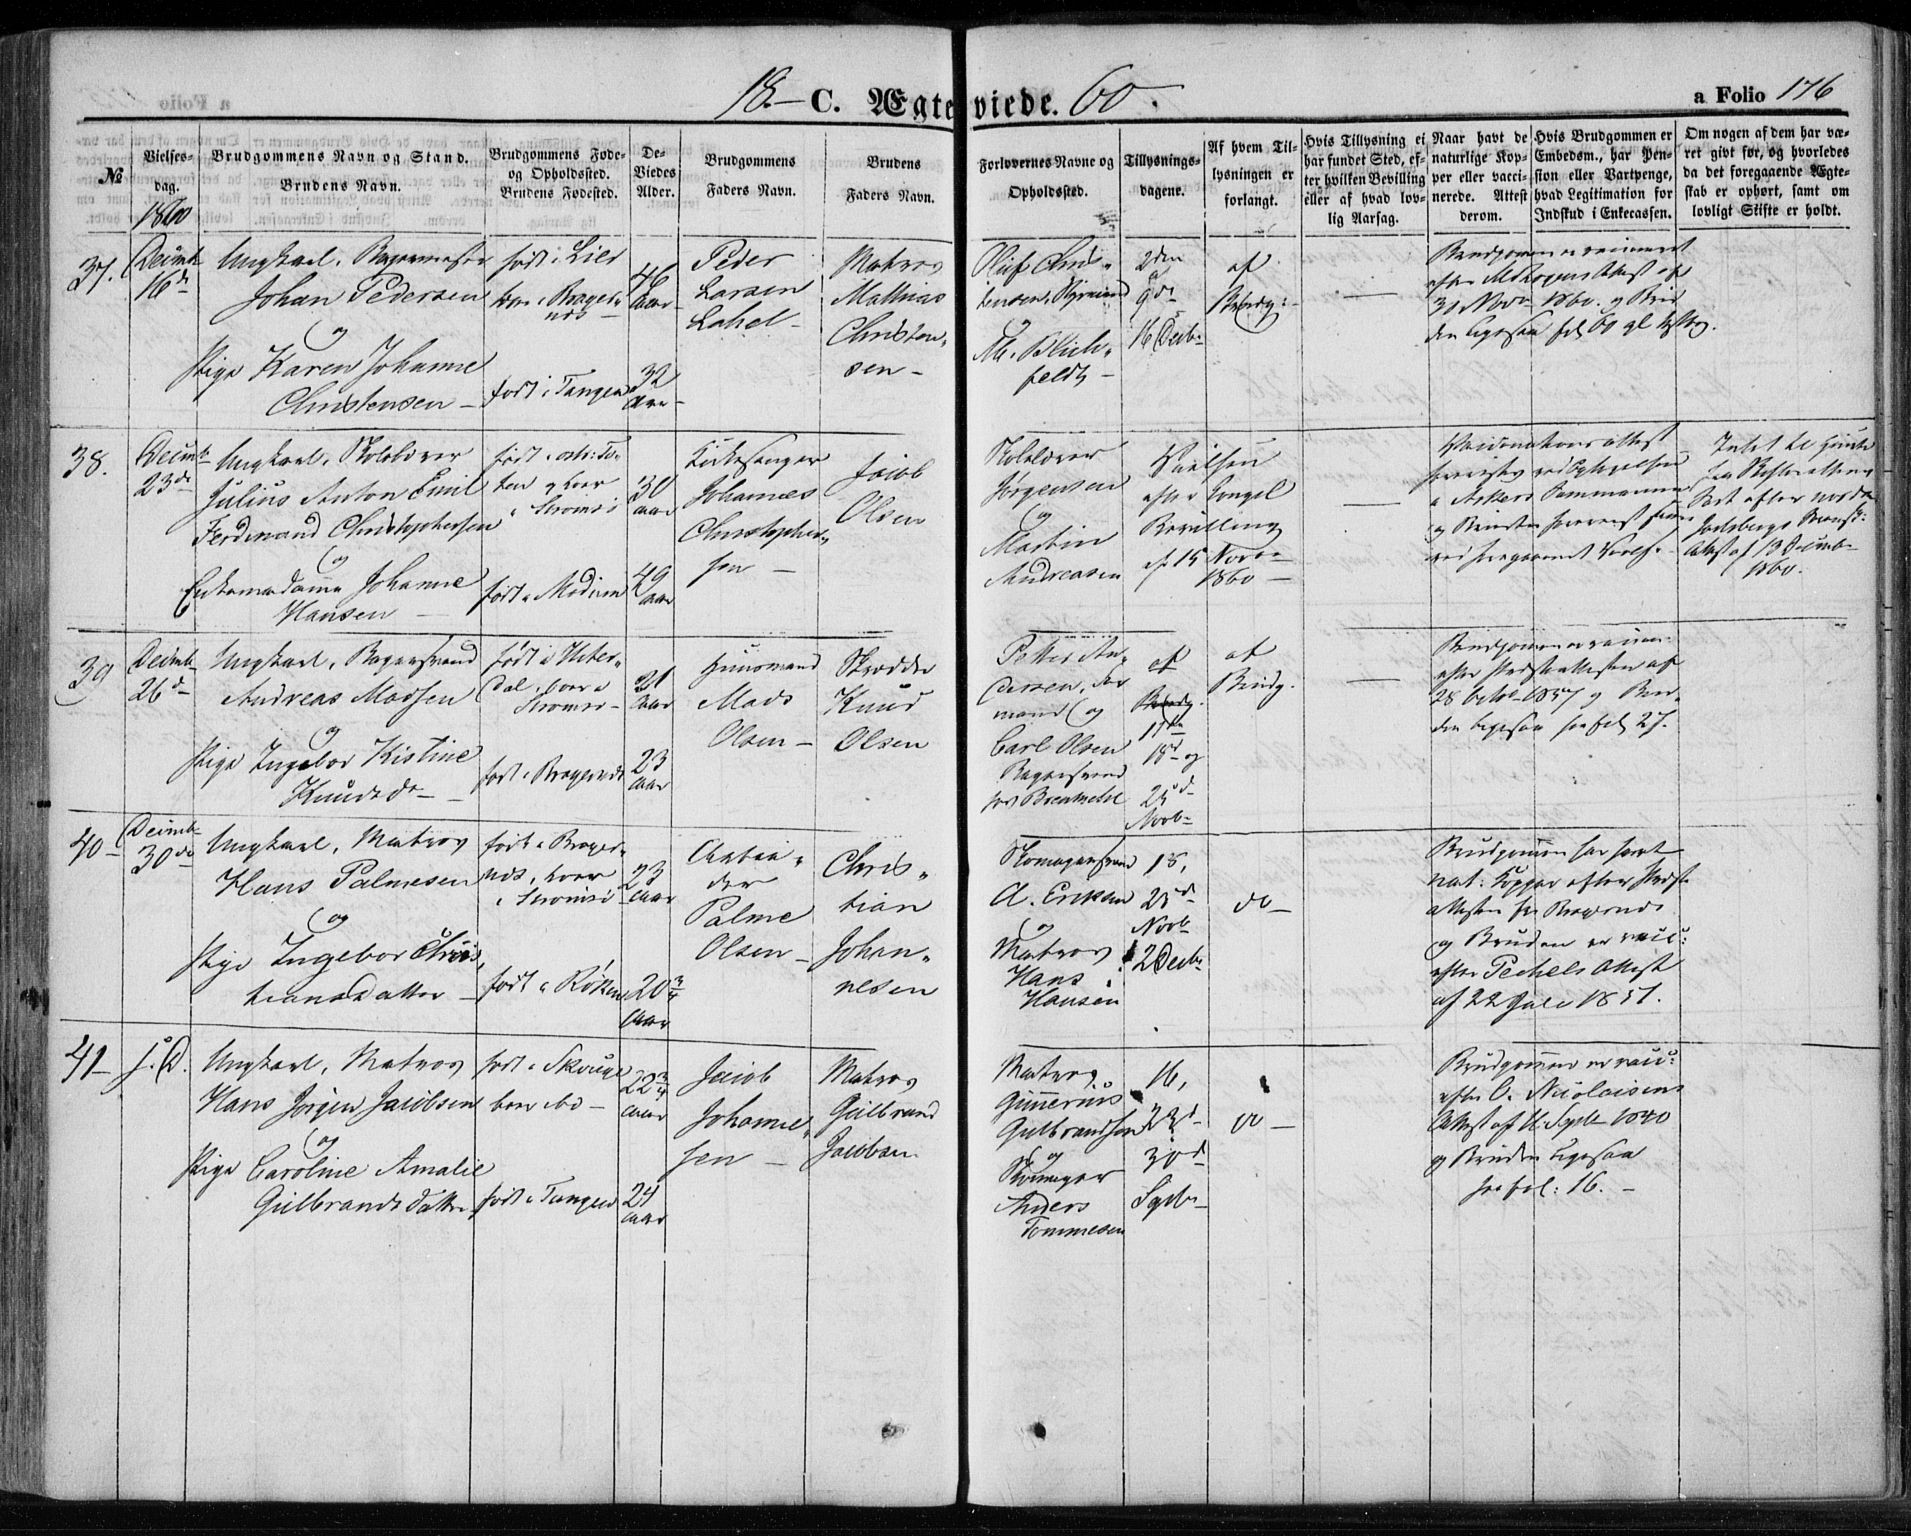 18— C. Ægteviede. 60.
a Folio 176
№
Vielses-
dag.
1860
Brudgommens Navn og Stand.
Brudens Navn.
Brudgommens Føde-
og Opholdssted.
Brudens Fødested.
De-
Viedes
Alder.
Brudgommens
Faders Navn.
Brudens
Faders Navn.
Forlovernes Navne og
Opholdssted.
Tillysnings-
dagene.
Af hvem Til-
lysningen er
forlangt.
Hvis Tillysning ei
har fundet Sted, ef-
ter hvilken Bevilling
eller af hvad lov-
lig Aarsag.
Naar havt de
naturlige Kop-
per eller vacci-
nerede. Attest
derom.
Hvis Brudgommen er
Embedsm., har Pen-
sion eller Vartpenge,
hvad Legitimation for
Indskud i Enkecassen.
Om nogen af dem har væ-
ret givt før, og hvorledes
da det foregaaende Ægte-
skab er ophørt, samt om
lovligt Skifte er holdt.
37.
Decimb
16de
Ungkarl, Bagermester
Johan Pedersen
og
Pige Karen Johanne
Christensen —
født i Lier
boer i Brager-
næs —
født i Tangen
46
Aar
32
Aar
Peder
Larsen
Matros
Mathias
Christen-
sen —
Oluf Chri-
stensen, Styrmand
og
M. Blich-
feldt —
2den
9de
16 Decb
af
Brudg:
—
30 Novbr 1860. og Bru-
den ligesaa
38.
Decimb
23de
Ungkarl, Skolelærer
Julius Anton Emil
Ferdinand Christophersen
og
Enkemadame Johanne
Hansen —
født i
ten og boer
i Strømsø
født i Modum
30
aar
49
aar
Kirkesanger
Johannes
Christopher-
sen —
Jacob
Olsen
Skolelærer
Jørgensen
og
Martin
Andreasen
Vielsen
efter Kongel
Bevilling
af 15 Novbr
1860 —
—
Vaccinationsattest
og Bruden
Intet til Hinder
fra Skifteretten
Attest af 13 Decimb
1860.
39
Decimb
26de
Ungkarl, Bagersvend
Andreas Madsen
og
Pige Ingebor Kistine
Knudsdr —
født i Hiter-
dal, boer i
Strømsø —
født i Bragernæs
31
aar
23
aar
Huusmand
Mads
Olsen —
Skredder
Knud
Olsen
Petter An-
dersen,
mand og
Carl Olsen
Bagersvend
af
11te
18de og
25de
Novb
af
Brudg.
—
Brudgommen er vacc:
efter Præsteattesten af
28 Octbr 1857 og Bru-
den ligesaa see fol 27.
40—
Decimb
30de
Ungkarl, Matros
Hans Palmesen
og
Pige Ingebor Chris-
tiansdatter —
født i Brager-
næs, boer
i Strømsø
født i Røken
23
aar
20 3/4
Aar
Arbei-
der
Palme
Olsen —
Chris-
tian
Johan-
nesen
Skomagersvend
A. Eriksen
og
Matros
Hans
Hansen
18,
25de
Novb
2 Decbr
do —
Brudgommen har havt
nat: Kopper efter Præste
attesten fra Bragernæs
og Bruden er vacc:
efter Pechels Attest
af 22 Juli 1851.
41—
s. D.
Ungkarl, Matros
Hans Jørgen Jacobsen
og
Pige Caroline Amalie
Gulbrandsdatter
født i Skouge
boer ibd —
født i Tangen
22 3/4
aar
24
aar
Jacob
Johanne-
sen —
Matros
Gulbrand
Jacobsen
Matros
Gunerius
Gulbrandsen
og
Skomager
Anders
Tommesen
16,
23de
30de
Septbr
do —
Brudgommen er vacc:
efter O. Nicolaisens
Attest af 11 Septbr 1840
og Bruden ligesaa
see fol: 16. —